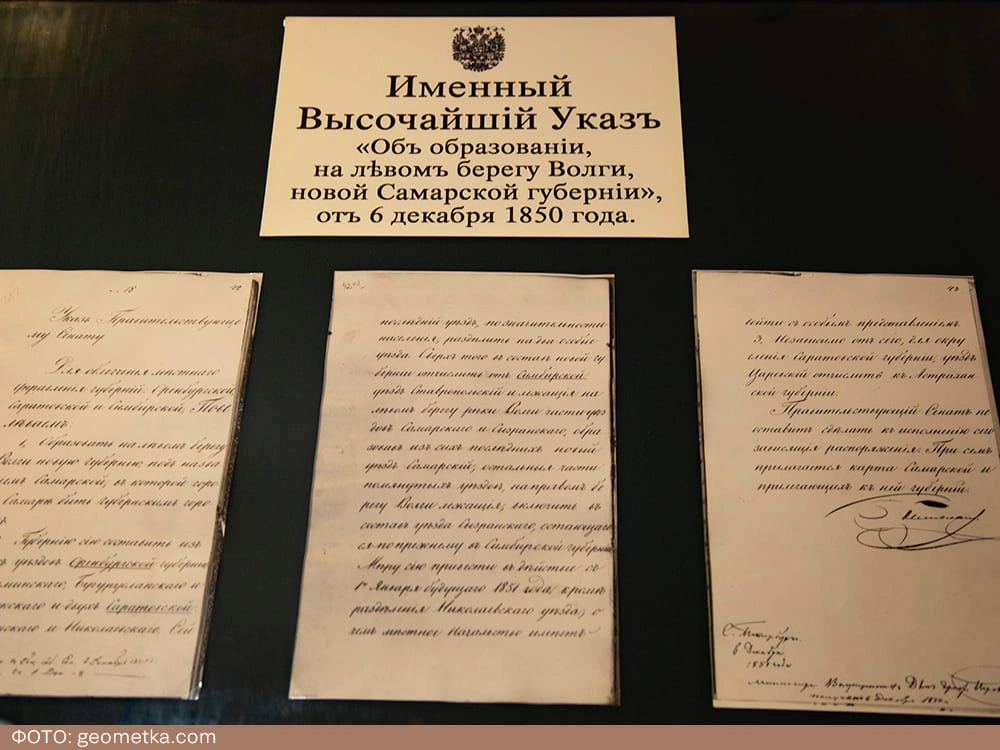 Именный
Высочайшій Указъ
«Объ образованіи,
на лѣвомъ берегу Волги,
новой Самарской губерніи»,
отъ 6 декабря 1850 года.
18
42
Указъ Правительствующе
му Сенату.
Для облегченія мѣстнаго
управленія губерній Оренбургской,
Саратовской и Симбирской, Пове
лѣваемъ:
1. Образовать на лѣвомъ берегу
Волги новую губернію подъ назва
емъ Самарской, въ которой горо
Самарѣ быть губернскимъ горо
ъ.
Губернію сію составить изъ
хъ уѣздовъ Оренбургской губерніи
минскаго, Бугурусланскаго и
скаго и двухъ Саратовской
нскаго и Николаевскаго. Сей
послѣдній уѣздъ, по значительности
населенія, раздѣлить на два особые
уѣзда. Сверхъ того въ составъ новой гу
берніи отчислить отъ Симбирской
уѣздъ Ставропольскій и лежащія на
лѣвомъ берегу рѣки Волги части уѣз
довъ Самарскаго и Сызранскаго, обра
зовавъ изъ сихъ послѣднихъ новый
уѣздъ Самарскій; остальныя части
помянутыхъ уѣздовъ, на правомъ бе
регу Волги лежащія, включить въ
составъ уѣзда Сызранскаго, остающаго
ся по прежнему въ Симбирской губерніи.
Мѣру сію привести въ дѣйствіе съ
1го Января будущаго 1851 года, кромѣ
раздѣленія Николаевскаго уѣзда, о
чемъ мѣстное Начальство имѣетъ
43
войти съ особымъ представленіемъ.
3. Независимо отъ сего, для окру
гленія Саратовской губерніи, уѣздъ
Царевскій отчислить къ Астрахан
ской губерніи.
Правительствующій Сенатъ не
оставитъ сдѣлать къ исполненію сего
зависящія распоряженія. При семъ
прилагается карта Самарской и
прилегающихъ къ ней губерній.
С. Петербургъ.
6 Декабря
Министръ Внутреннихъ Дѣлъ
ФОТО: geometka.com